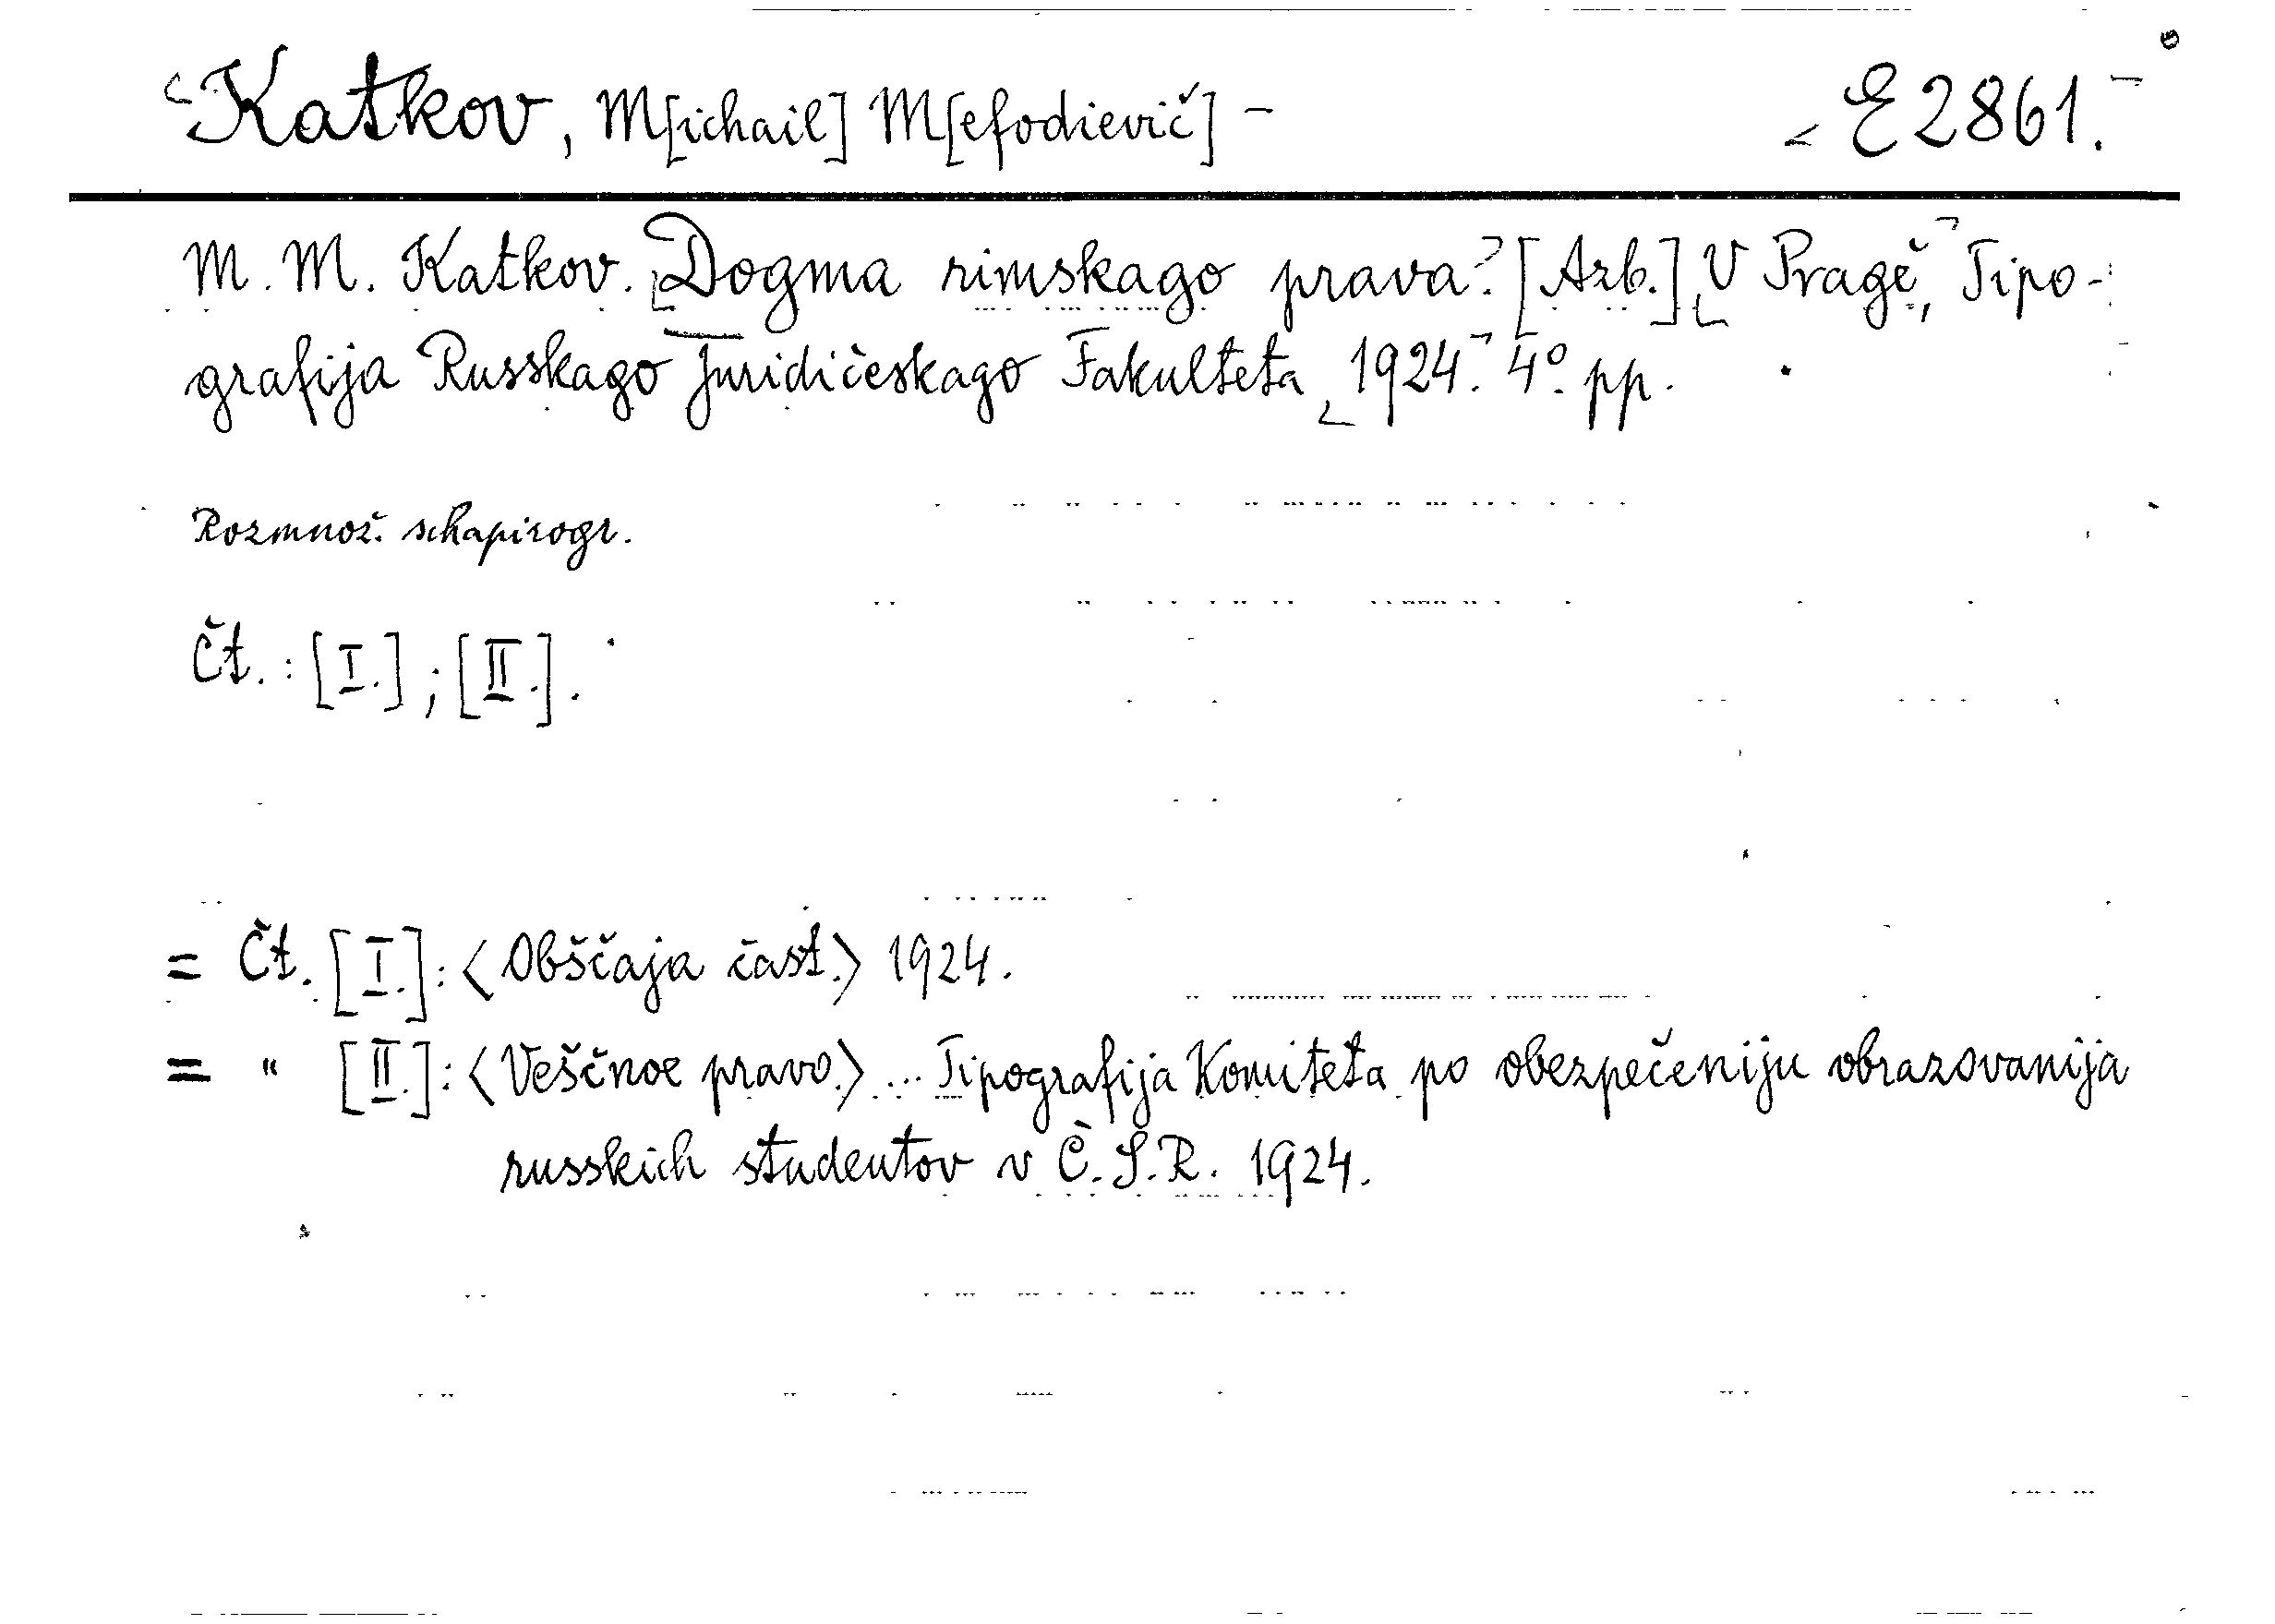 Katkov, M[ichail] M[efodievič] – E 2861.
M. M. Katkov. Dogma rimskago prava. [Azb.] V Pragě, Tipo-
grafija Russkago Juridičeskago Fakulteta, 1924. 4º. pp.
Rozmnož. schapirogr.
Čt.: [I.]; [II.].
= Čt. [I.]: <Obščaja čast.> 1924.
= " [II.]: <Veščnoe pravo.> ... Tipografija Komiteta po obezpečeniju obrazovanija
russkich studentov v Č.S.R. 1924.